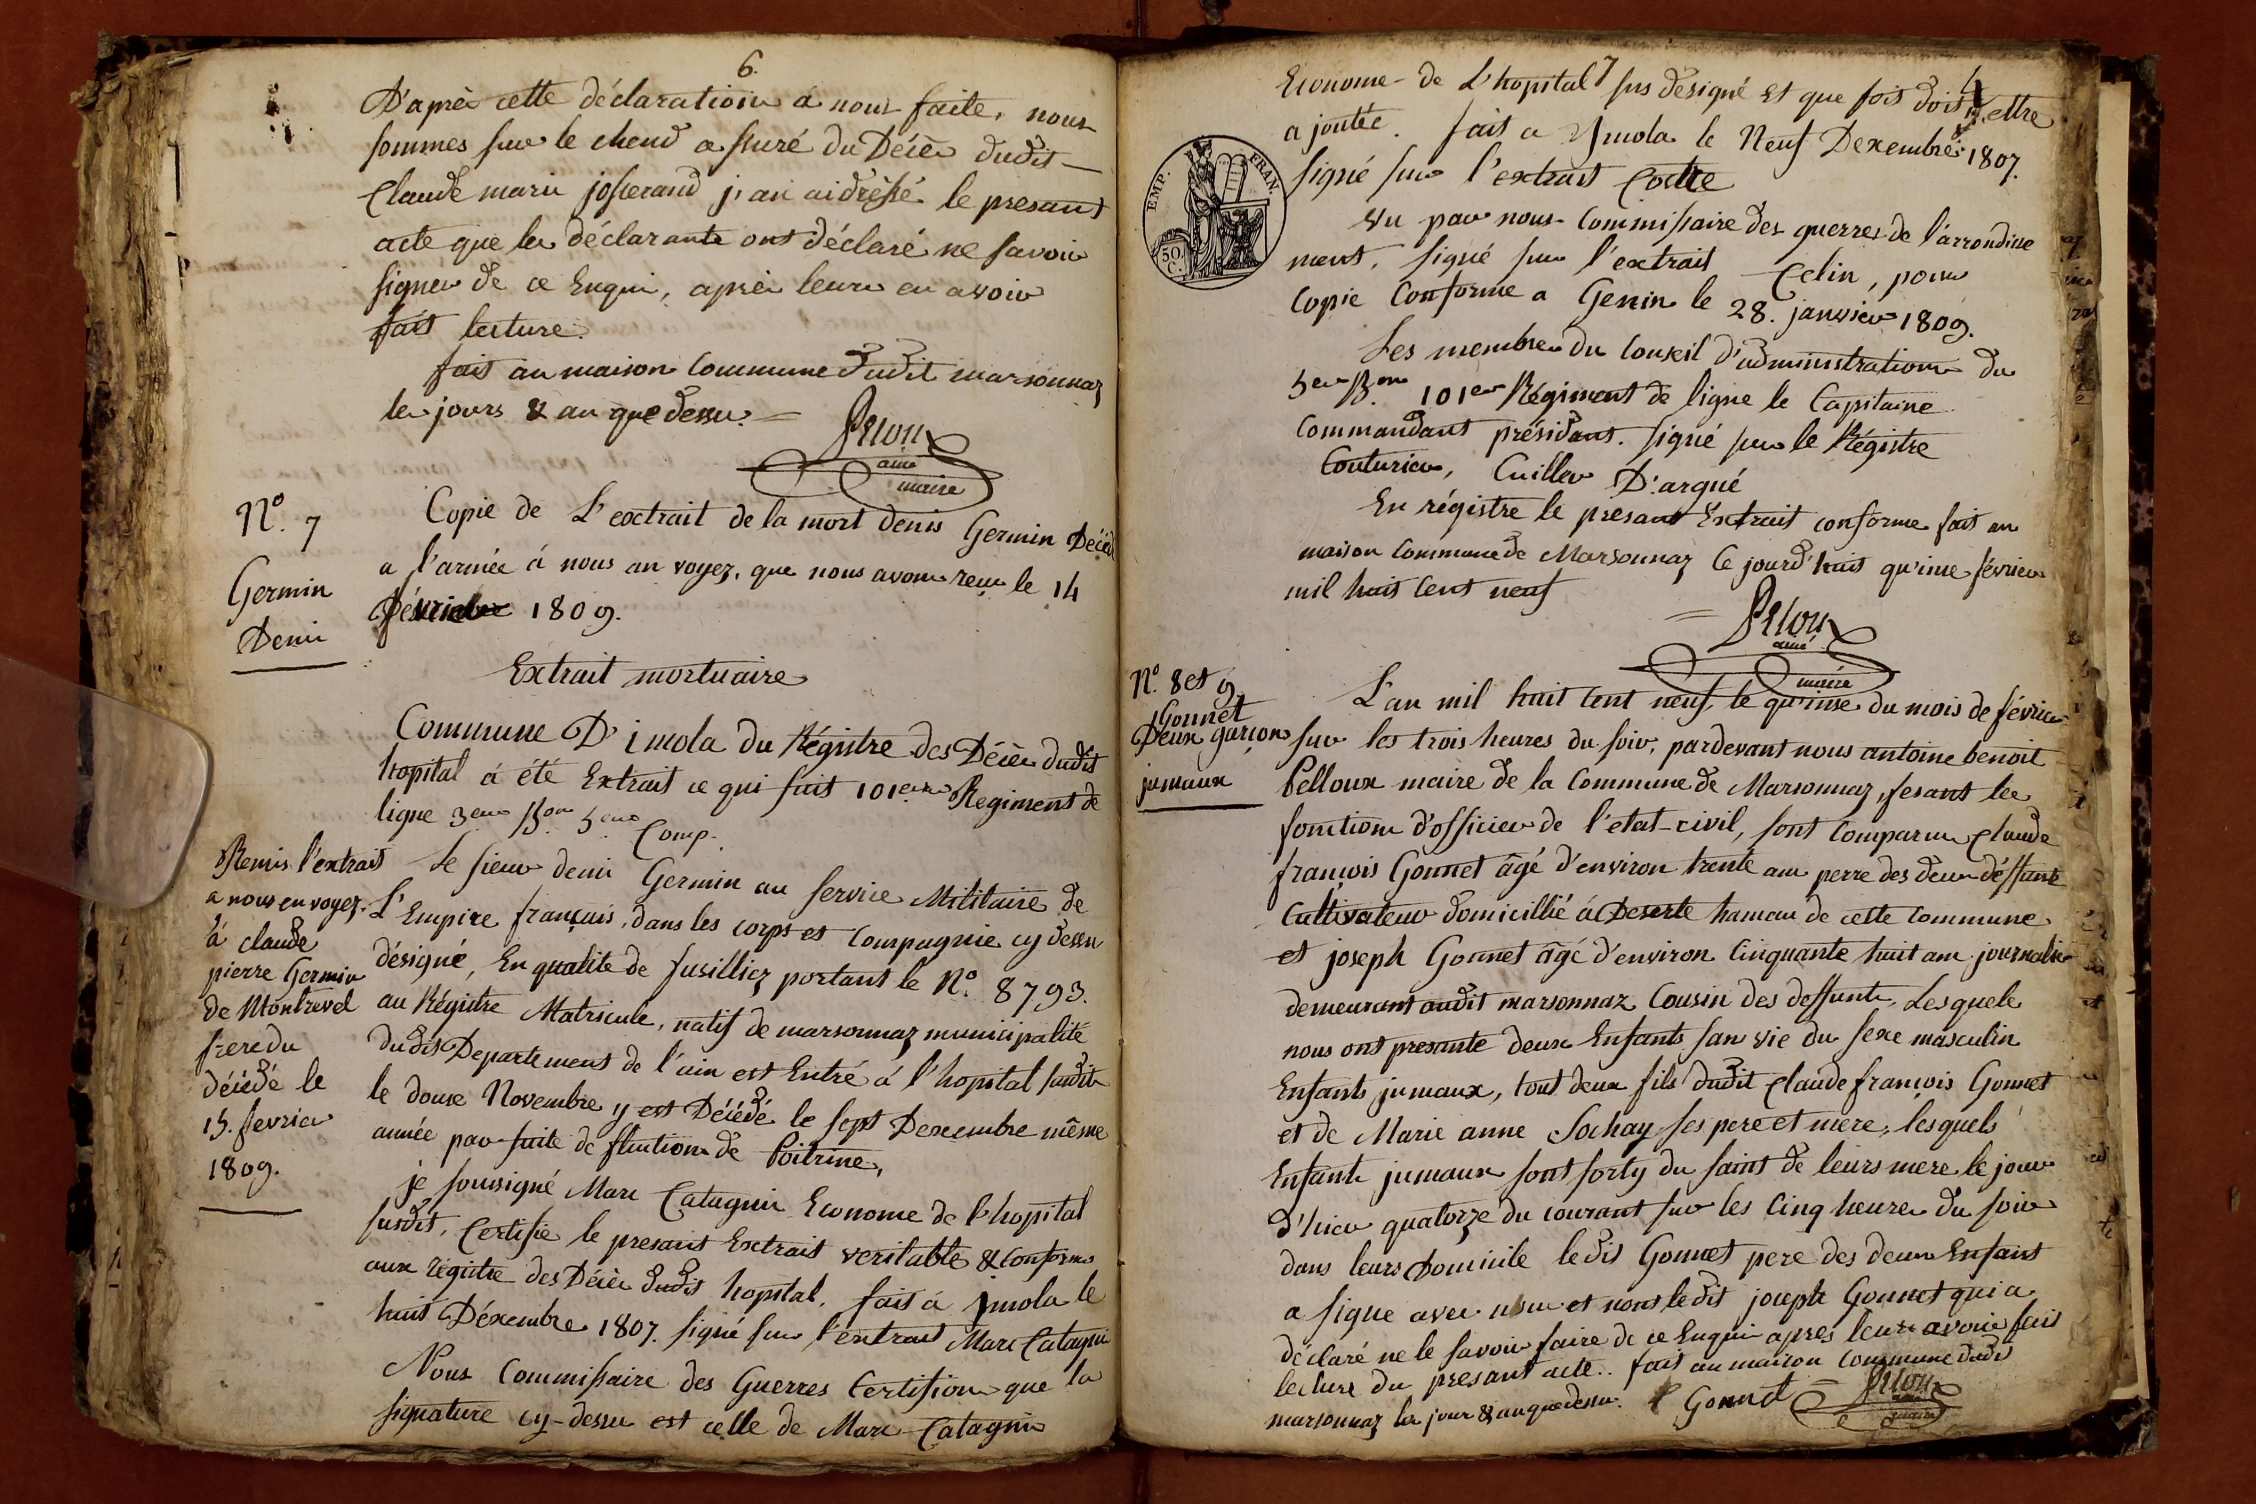 6.
D'après cette déclaration à nous faite, nous
sommes sur le cheud assuré du Décès dudit
Claude marie josserand j'ai aidréssé le presant
acte que les déclarants ont déclaré ne savoir
signer de ce Enquis, après leurs en avoir
fait lecture.
fait au maison Commune dudit marsonnaz
les jours & an que dessus.
Pelloux
ainé
maire
N.º 7
Germin
Denis
Copie de L'extrait de la mort denis Germin Décédé
a l'armée à nous an voyez, que nous avons reçu le 14
février 1809.
Extrait mortuaire
Commune D'imola du Régistre des Décès dudit
hopital à été Extrait ce qui suit 101eme Regiment de
ligne 3eme Bon 5eme Comp.
Remis l'extrait
a nous en voyez
à claude
pierre Germin
de Montrevel
frere du
décédé le
15. fevrier
1809.
Le sieur denis Germin au service Militaire de
L'Empire français, dans les corps et Compagnie cy dessus
désigné, En qualite de fusilliez portant le Nº. 8793.
au Régistre Matricule, natif de marsonnaz municipalité
dudit Departement de l'ain est Entré à l'hopital susdit
le douse Novembre y est Décédé le sept Dexembre même
année par suite de fluction de Poitrine,
je sousigné Marc Catagnin Econome de l'hopital
susdit, Certifie le presant Extrait veritable & conforme
aux régistre des Décès dudit hopital. fait à jmola le
huit Déxembre 1807. signé sur l'extrait Marc Catagnin
Nous Commissaire des Guerres Certifions que la
signature cy-dessus est celle de Marc Catagnin
7
Econome de L'hopital sus désigné et que fois doit y ettre
a joutée. fait a Ymola le Neuf Dexembre 1807.
signé sur l'extrait
EMP. FRAN.
50 C.
Vu par nous Commissaire des guerres de l'arrondisse
ment, signé sur l'extrait Celin, pour
Copie Conforme a Genin le 28. janvier 1809.
Les membres du Conseil d'administration du
5eme Bon 101eme Régiment de ligne le Capitaine
Commandant présidant. signé sur le Régistre
Couturier, Cuiller D'argué
En régistre le presant Extrait conforme fait an
maison Commune de Marsonnaz Ce jourd'huit qu'inse février
mil huit Cent neuf
Pelloux
ainé
maire
Nº. 8 et 9
Gonnet
Deux garçons
jumaux
L'an mil huit Cent neuf, le qu'inse du mois de février
sur les trois heures du soir, pardevant nous antoine benoit
Pelloux maire de la Commune de Marsonnaz, fesant les
fonctions d'officier de l'etat-civil, sont Comparus Claude
françois Gonnet âgé d'environ trente ans perre des deux déffunts
Cultivateur domicillié à Deserte hamau de cette Commune
et joseph Gonnet âgé d'environ Cinquante huit ans journalier
demeurant audit marsonnaz Cousin des deffunts, Lesquels
nous ont presanté deux Enfants san vie du sexe masculin
Enfants jumaux, tout deux fils dudit Claude françois Gonnet
et de Marie anne Sochay ses pere et mere, lesquels
Enfants jumaux sont sorty du saint de leurs mere le jour
d'hier quatorze du courant sur les Cinq heures du soir
dans leurs Domicile ledit Gonnet pere des deux Enfant
a signe avec nous et non ledit joseph Gonnet qui a
déclaré ne le savoir faire de ce Enquis apres leurs avoir fait
lecture du presant acte. fait au maison Commune dudit
marsonnaz les jour & an que dessus. Gonnet Pelloux
ainé
maire